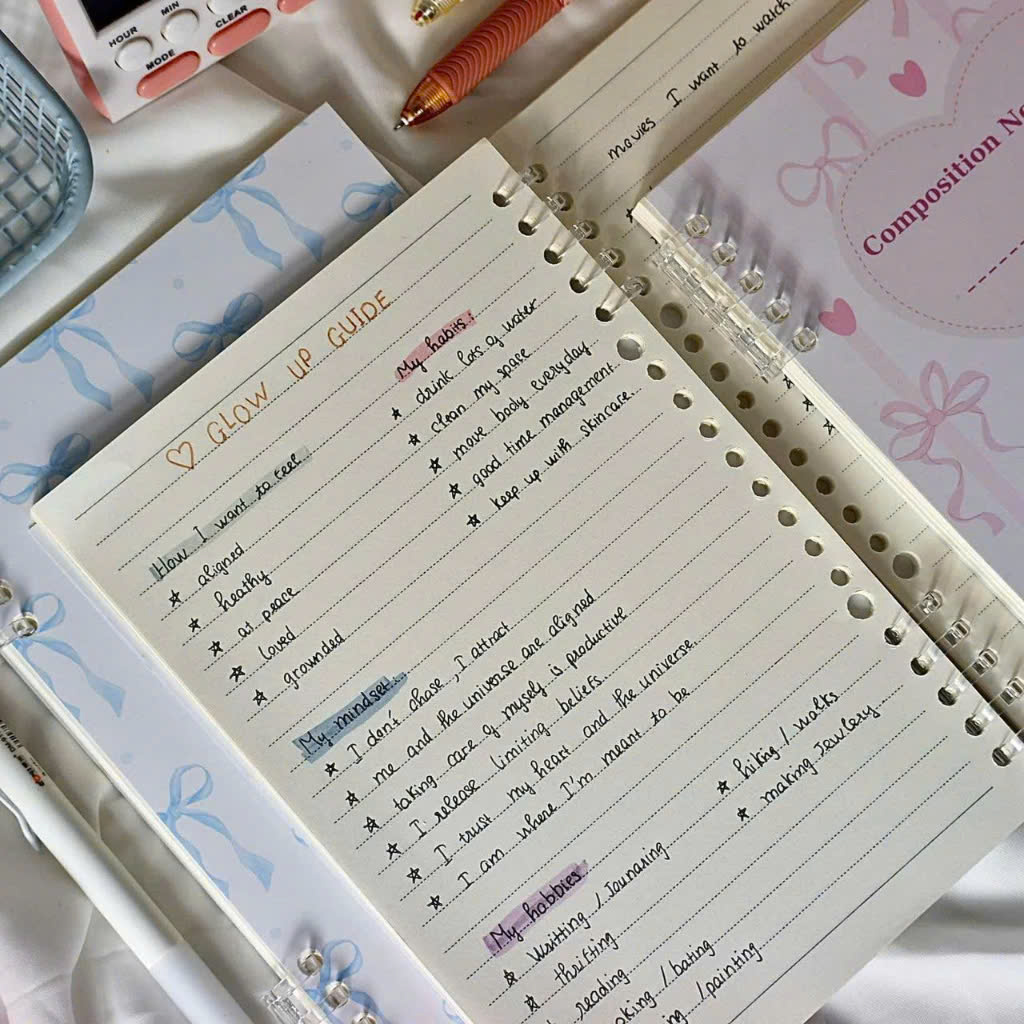 HOUR
MIN
MODE
CLEAR
movies I want to watch
Composition
♡ GLOW UP GUIDE
How I want to feel
☆ aligned
☆ heathy
☆ at peace
☆ loved
☆ grounded
My habits:
☆ drink lots of water
☆ clean my space
☆ move body everyday
☆ good time management
☆ keep up with skincare
My mindset:
☆ I don't chase, I attract
☆ me and the universe are aligned
☆ taking care of myself is productive
☆ I release limiting beliefs
☆ I trust my heart and the universe
☆ I am where I'm meant to be
My hobbies
☆ Writting / Jounaring
☆ thrifting
reading
/ bating
/ painting
☆ hiking / walks
☆ making Jewlery